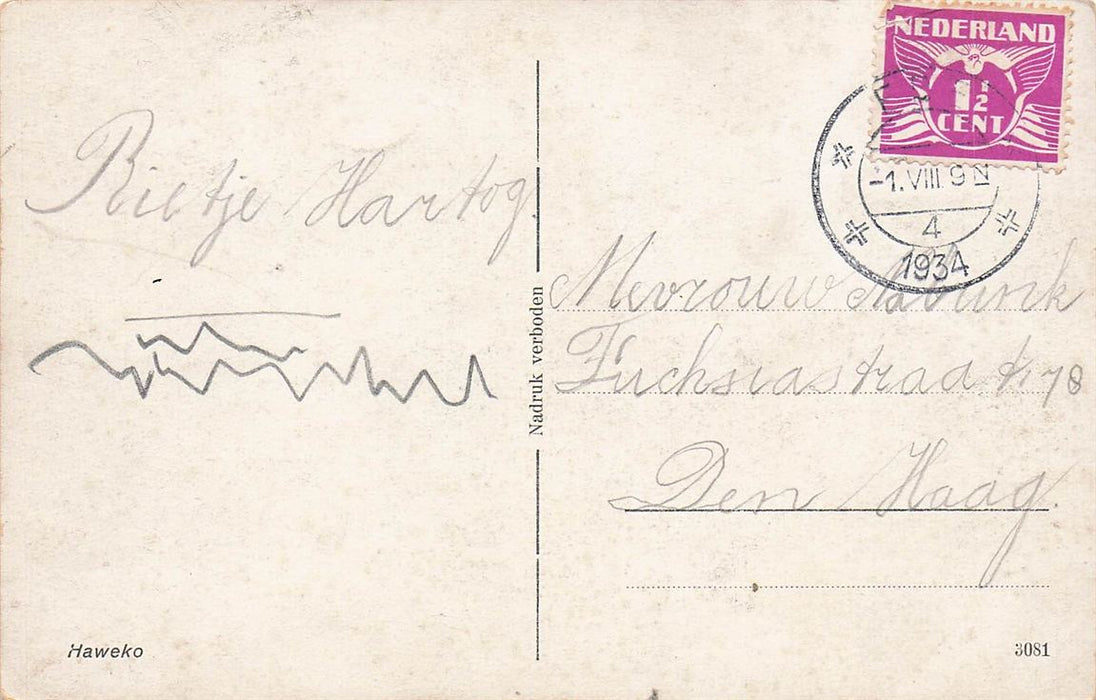 NEDERLAND
1½
CENT
-1.VIII 9 N
4
1934
Rietje Hartog.
Nadruk verboden
Mevrouw
Fuchsiastraat 178
Den Haag.
Haweko
3081